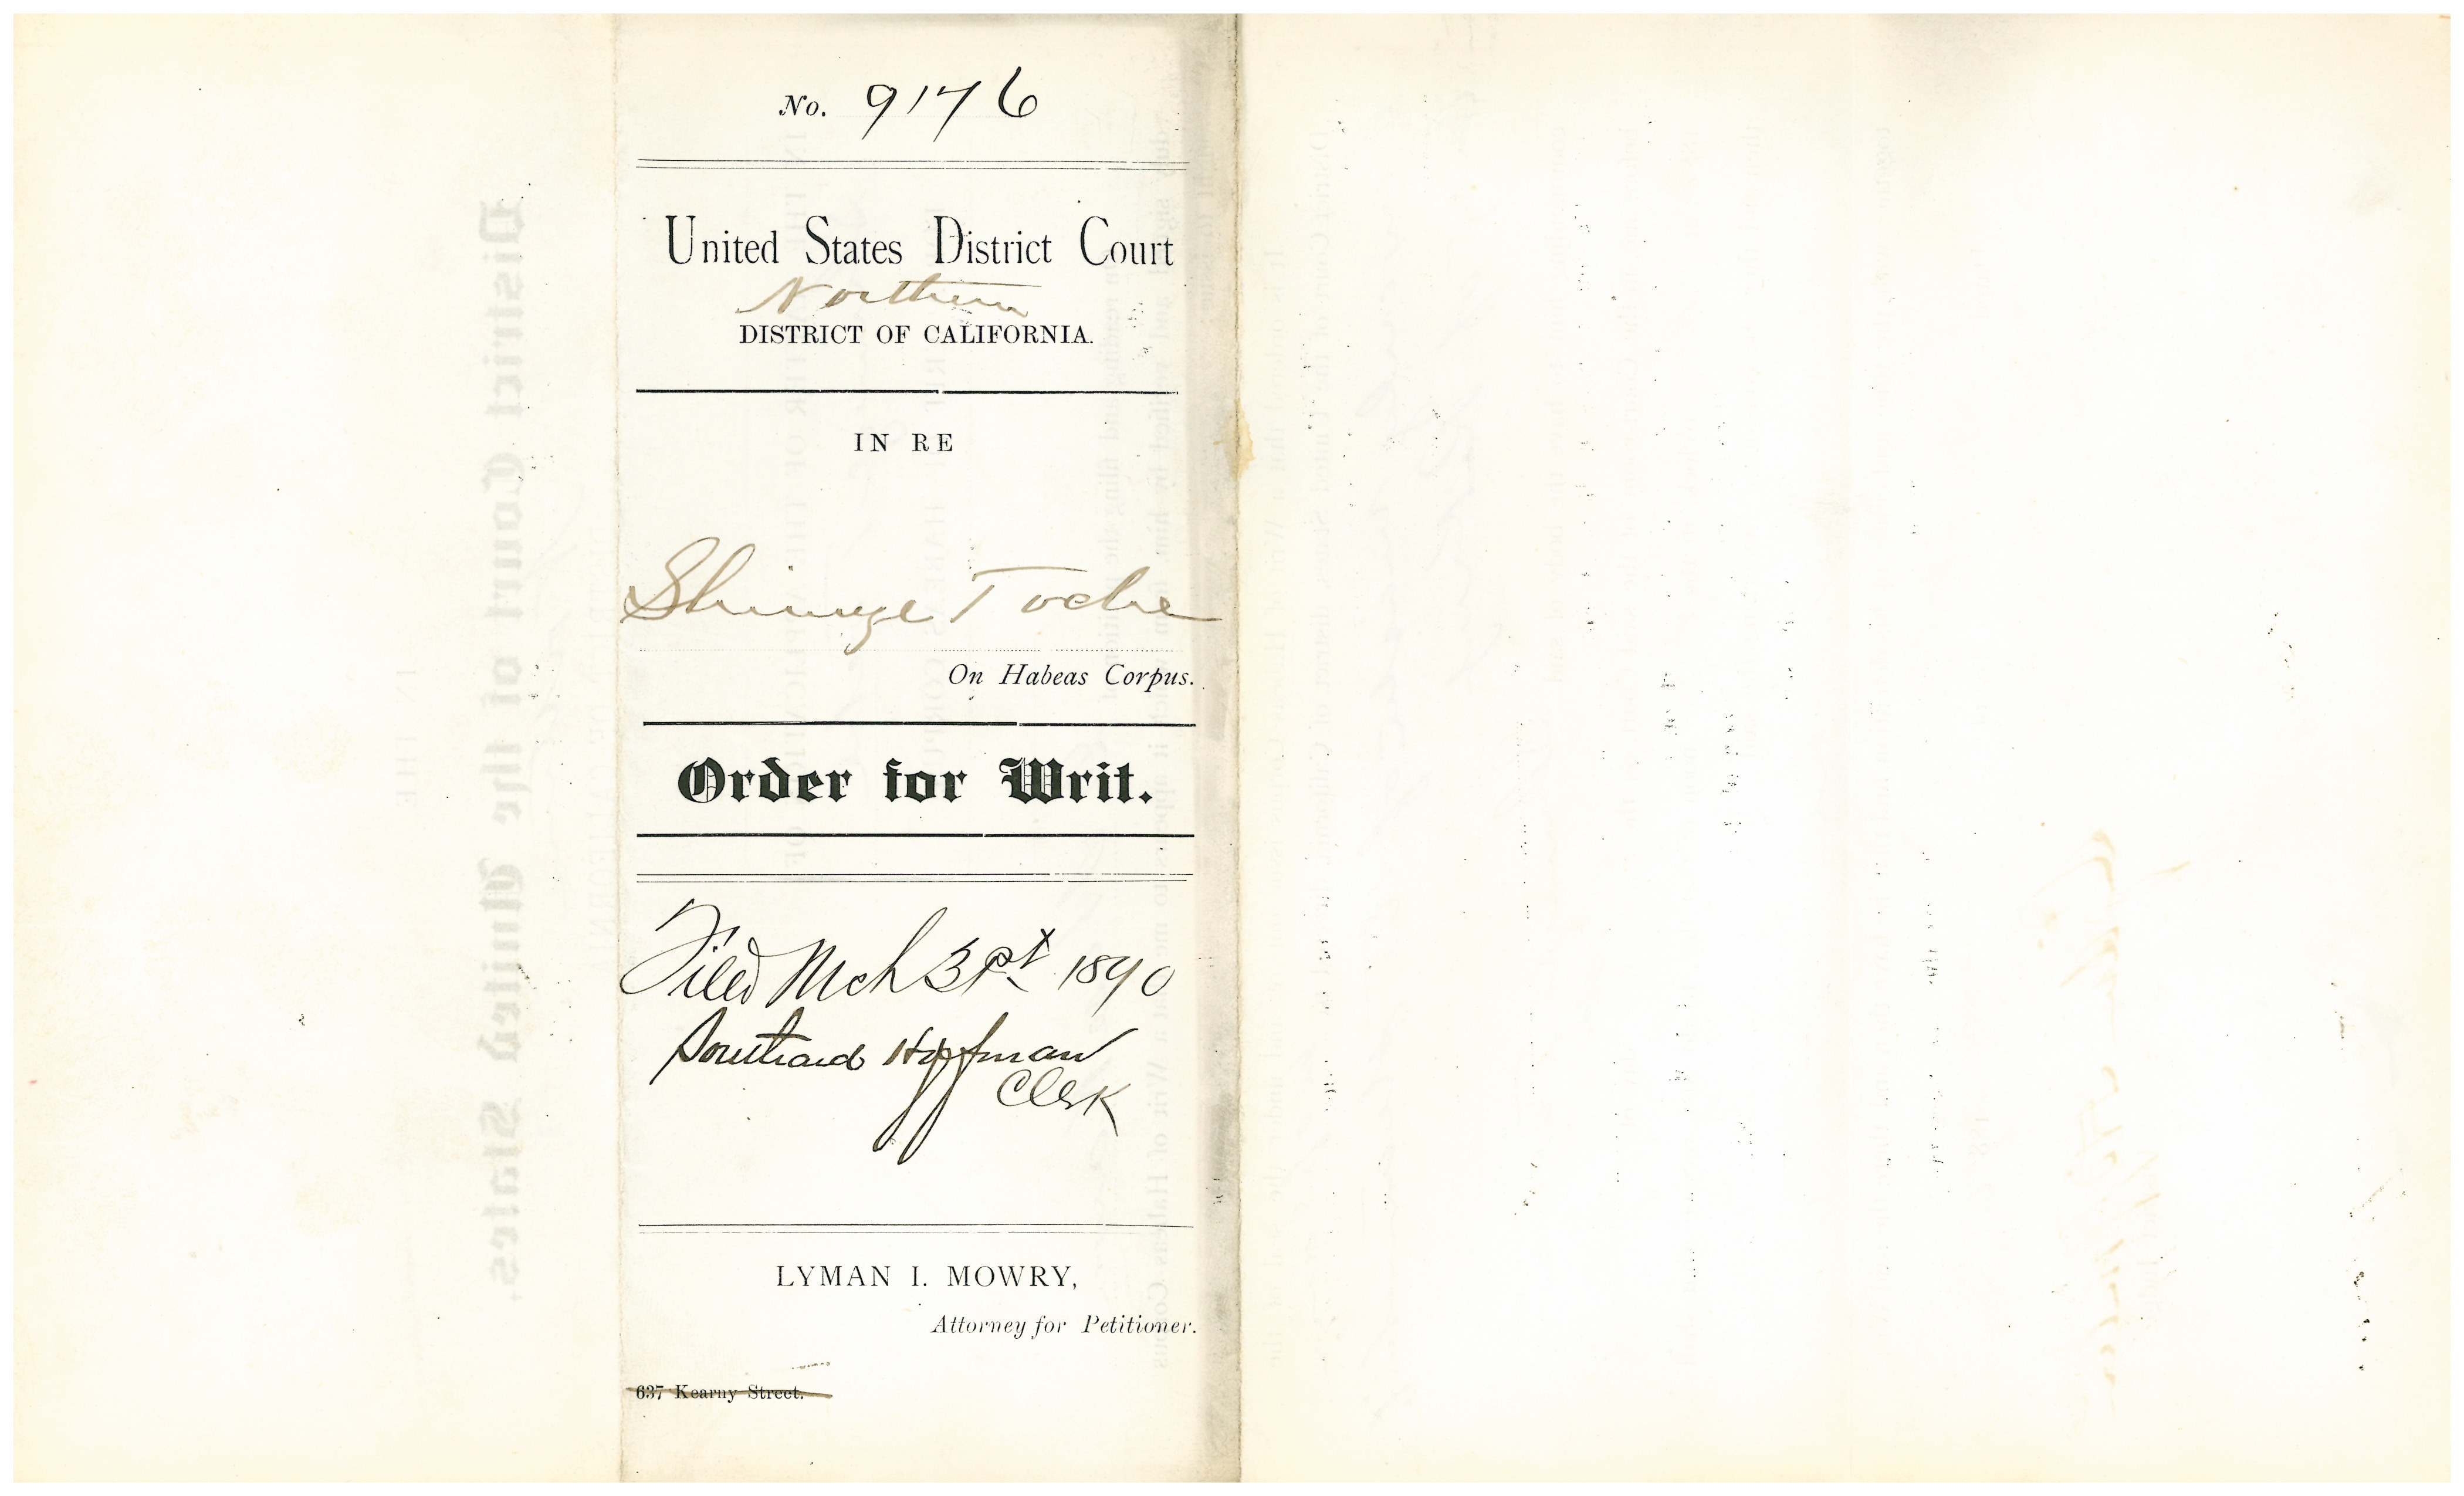 No. 9176
United States District Court
Northern
DISTRICT OF CALIFORNIA.
IN RE
Shimize Toche
On Habeas Corpus.
Order for Writ.
Filed Mch 31st 1890
Southard Hoffman
Clerk
LYMAN I. MOWRY,
Attorney for Petitioner.
637 Kearny Street.